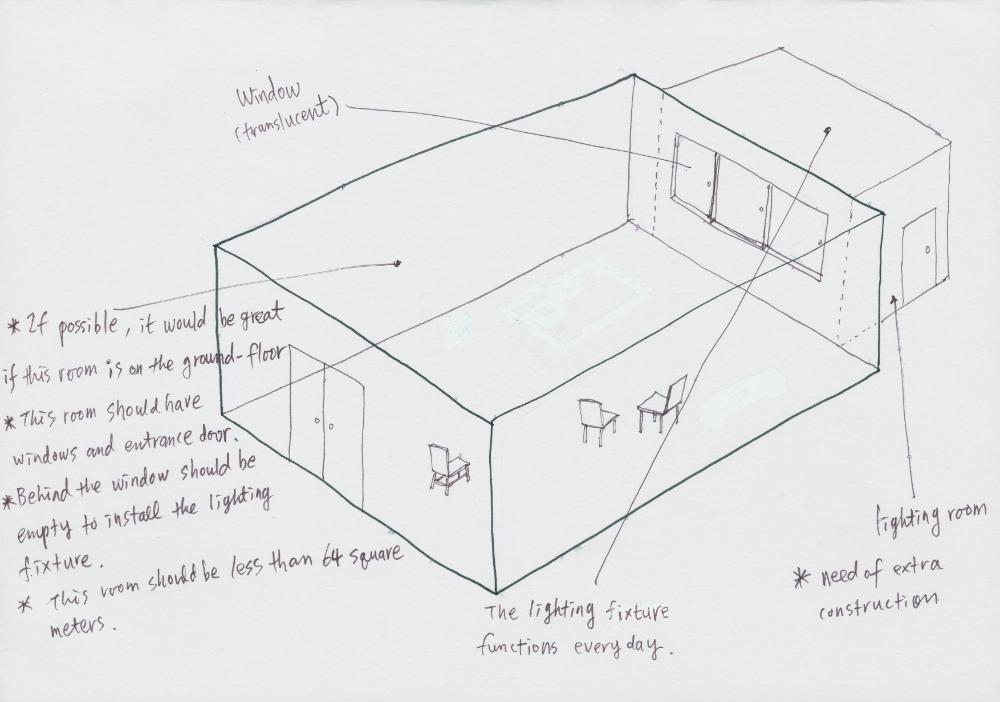 Window
(translucent)
* If possible, it would be great
if this room is on the ground-floor
* This room should have
windows and entrance door.
* Behind the window should be
empty to install the lighting
fixture.
* This room should be less than 64 square
meters.
The lighting fixture
functions everyday.
lighting room
* need of extra
construction